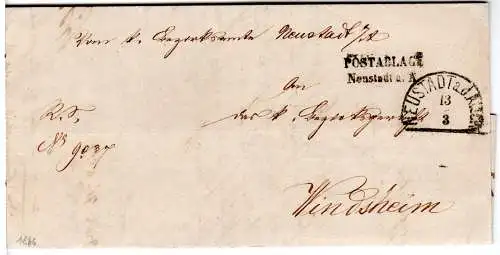 Vom k. Bezirksamte Neustadt /A
POSTABLAGE
Neustadt a. A.
NEUSTADT a.d. AISCH
13
3
An
das k. Bezirksgericht
R. S.
No
Windsheim
1866